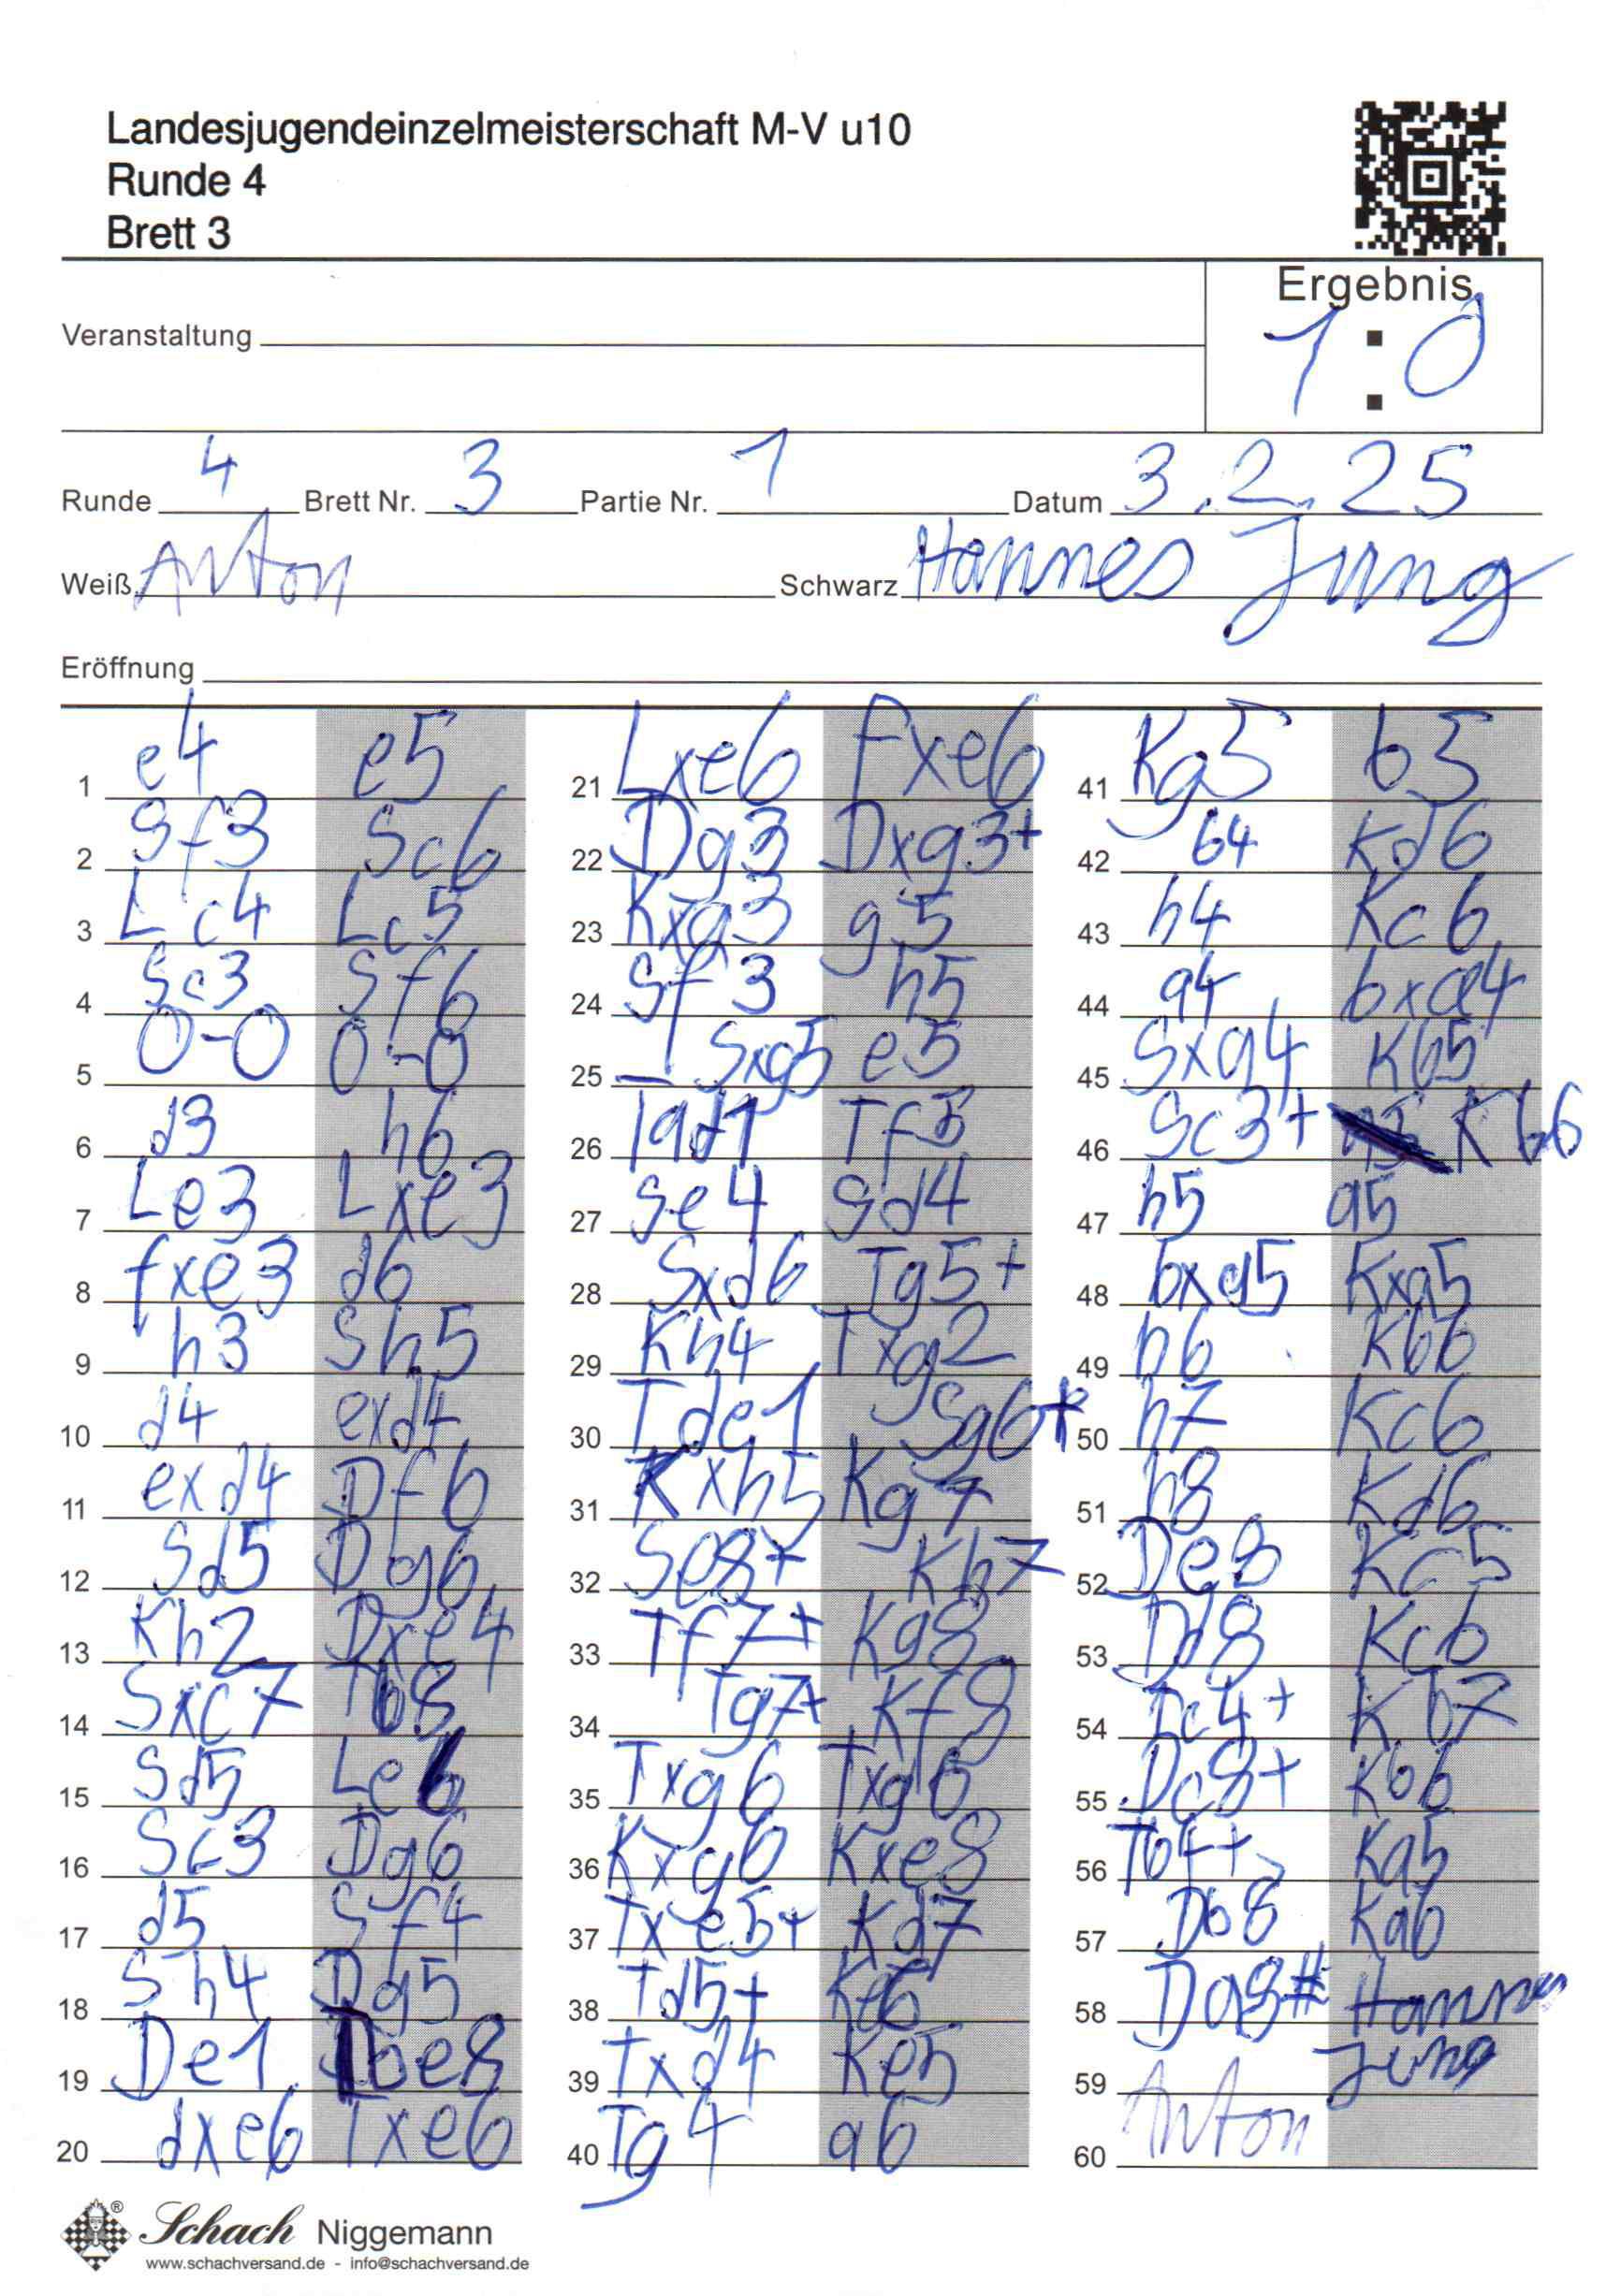 Landesjugendeinzelmeisterschaft M-V u10
Runde 4
Brett 3
Ergebnis
1 : 0
Veranstaltung
Runde 4 Brett Nr. 3 Partie Nr. 1 Datum 3.2.25
Weiß Anton Schwarz Hannes Jung
Eröffnung
1 e4 e5
2 Sf3 Sc6
3 Lc4 Lc5
4 Sc3 Sf6
5 0-0 0-0
6 d3 h6
7 Le3 Lxe3
8 fxe3 d6
9 h3 Sh5
10 d4 exd4
11 exd4 Df6
12 Sd5 Dg6
13 Kh2 Dxe4
14 Sxc7 Tb8
15 Sd5 Le6
16 Sc3 Dg6
17 d5 Sf4
18 Sh4 Dg5
19 De1 Tbe8
20 dxe6 Txe6
21 Lxe6 fxe6
22 Dg3 Dxg3+
23 Kxg3 g5
24 Sf3 h5
25 Sxg5 e5
26 Tad1 Tf5
27 Se4 Sd4
28 Sxd6 Tg5+
29 Kh4 Txg2
30 Tde1 Sg6+
31 Kxh5 Kg7
32 Se8+ Kh7
33 Tf7+ Kg8
34 Tg7+ Kf8
35 Txg6 Txg6
36 Kxg6 Kxe8
37 Txe5+ Kd7
38 Td5+ Ke6
39 Txd4 Ke5
40 Tg4 a6
41 Kg5 b5
42 b4 Kd6
43 h4 Kc6
44 a4 bxa4
45 Sxa4 Kb5
46 Sc3+ Kb6
47 h5 a5
48 bxa5 Kxa5
49 h6 Kb6
50 h7 Kc6
51 h8 Kd6
52 De8 Kc5
53 Dd8 Kc6
54 Tc4+ Kb7
55 Dc8+ Kb6
56 Tb4+ Ka5
57 Db8 Ka6
58 Da8# Hannes
Jung
59 Anton
60
® Schach Niggemann
www.schachversand.de - info@schachversand.de